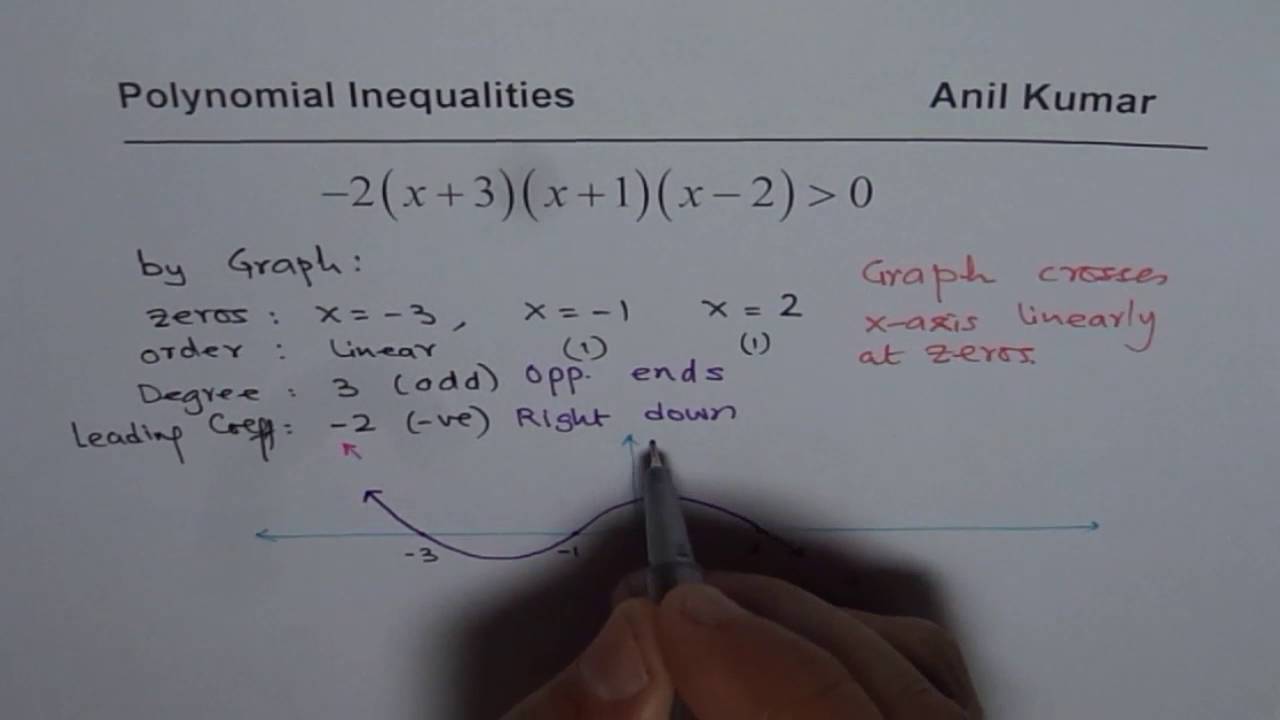 Polynomial Inequalities Anil Kumar
−2(x+3)(x+1)(x−2)>0
by Graph:
zeros: x = -3, x = -1 x = 2
order: linear (1) (1)
Degree: 3 (odd) Opp. ends
Leading Coeff: -2 (-ve) Right down
Graph crosses
x-axis linearly
at zeros.
-3 -1